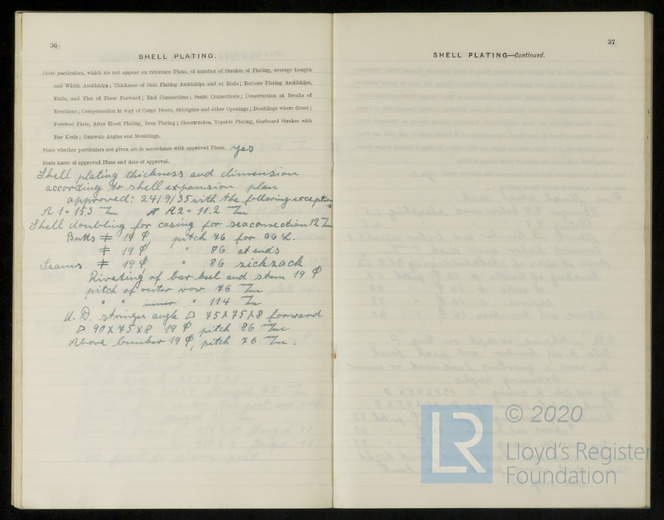 36
SHELL PLATING.
State particulars, which do not appear on reference Plans, of number of Strakes of Plating, average Length
and Width Amidships; Thickness of Side Plating Amidships and at Ends; Bottom Plating Amidships,
Ends, and Flat of Floor Forward; End Connections; Seam Connections; Construction at Breaks of
Erections; Compensation in way of Cargo Doors, Sidelights and other Openings; Doublings where fitted;
Foremost Plate, After Hood Plating, Boss Plating; Sheerstrakes, Topside Plating, Garboard Strakes with
Bar Keels; Gunwale Angles and Mouldings.
State whether particulars not given are in accordance with approved Plans. yes
State name of approved Plans and date of approval.
Shell plating thickness and dimension
according to shell expansion plan
approved: 24/9/35 with the following exception
A 1 = 15.3 m/m R 2 = 11.2 m/m
Shell doubling for casing for seaconnection 12 m/m
Butts ≠ 19 ϕ pitch 76 for
≠ 19 ϕ " 86 at ends
Seams ≠ 19 ϕ " 86 sicksack
Riveting of bar keel and stem 19 ϕ
pitch of outer row 76 m/m
" " inner " 114 m/m
U.D. stringer angle 75 x 75 x 8 forward
90 x 75 x 8 19 ϕ pitch 86 m/m
Above bunker 19 ϕ, pitch 76 m/m.
37
SHELL PLATING—Continued.
LR
© 2020
Lloyd's Register
Foundation